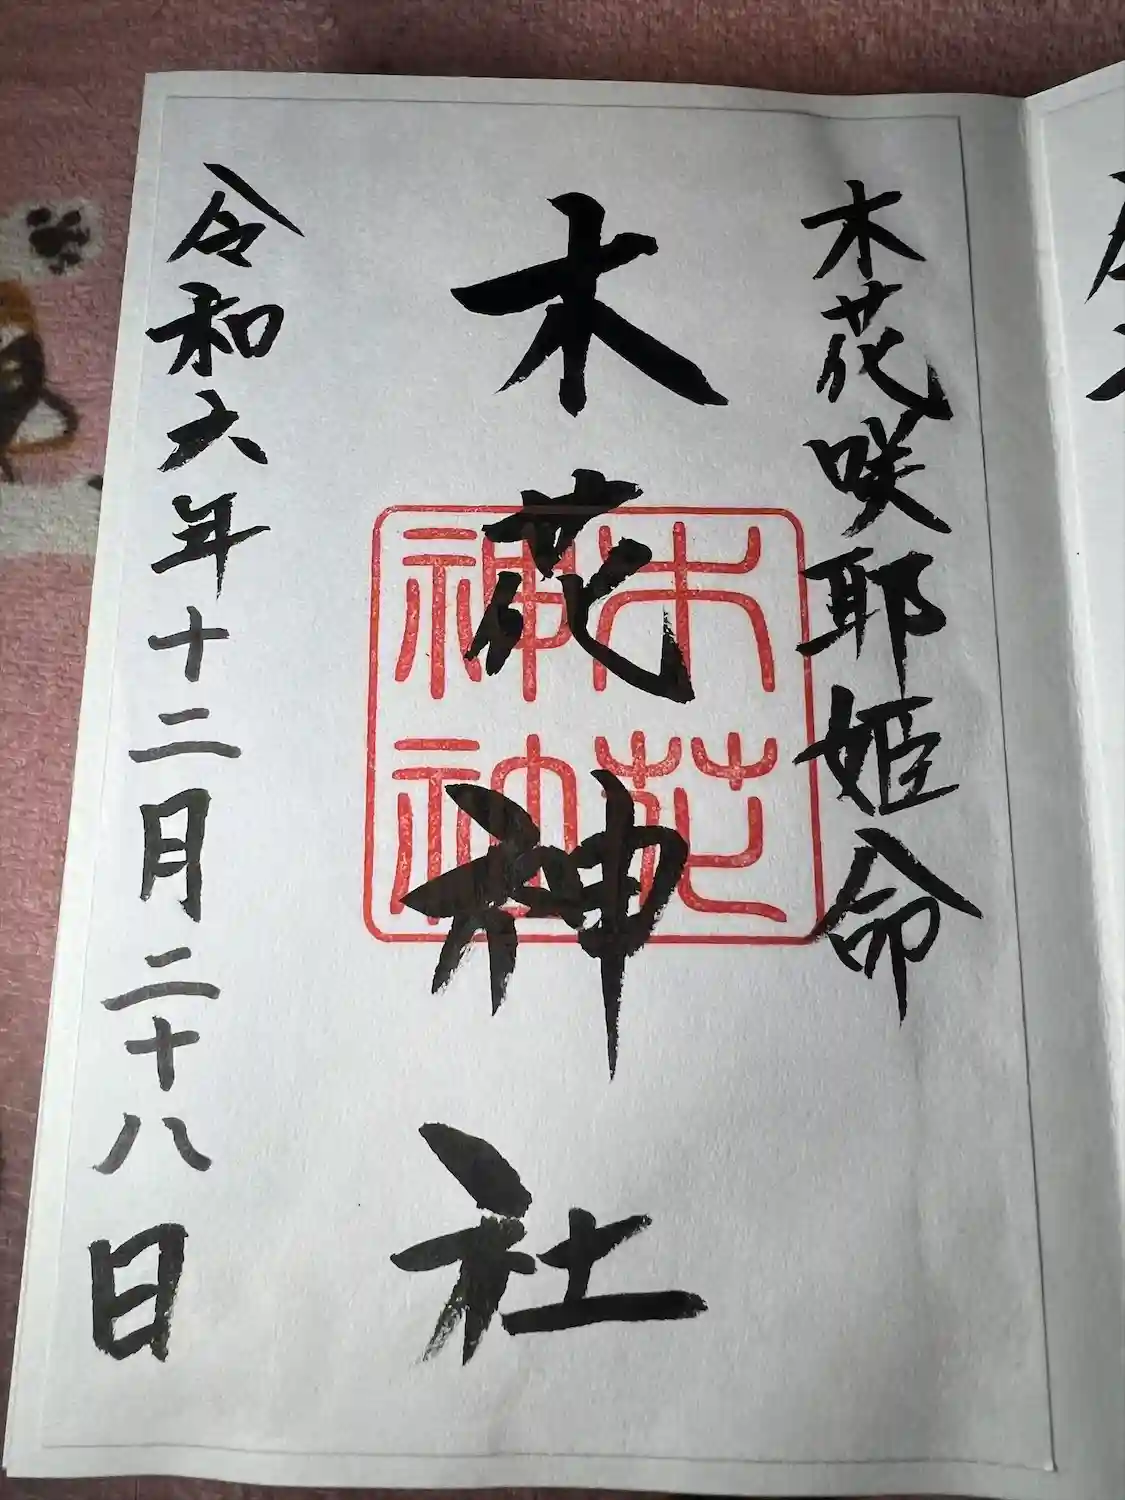 木花咲耶姫命
木花神社
令和六年十二月二十八日
木花
神社